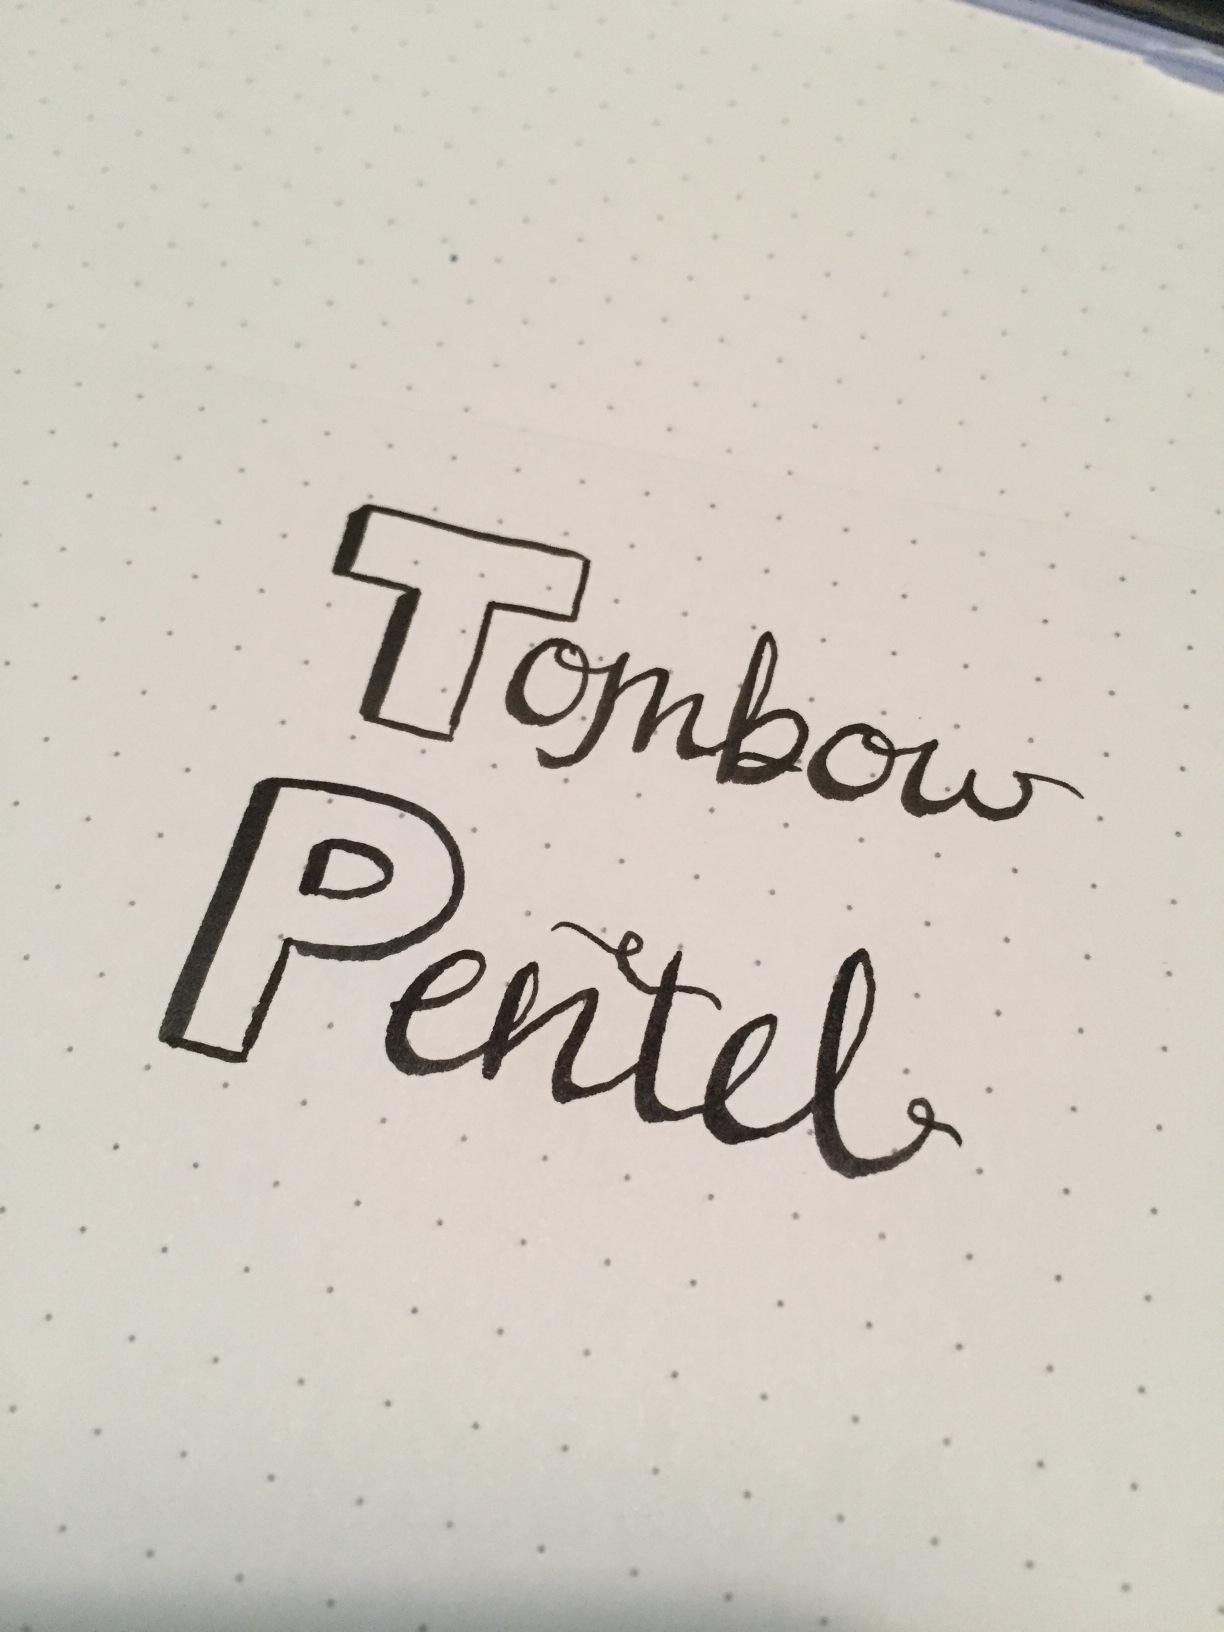 Tombow
Pentel